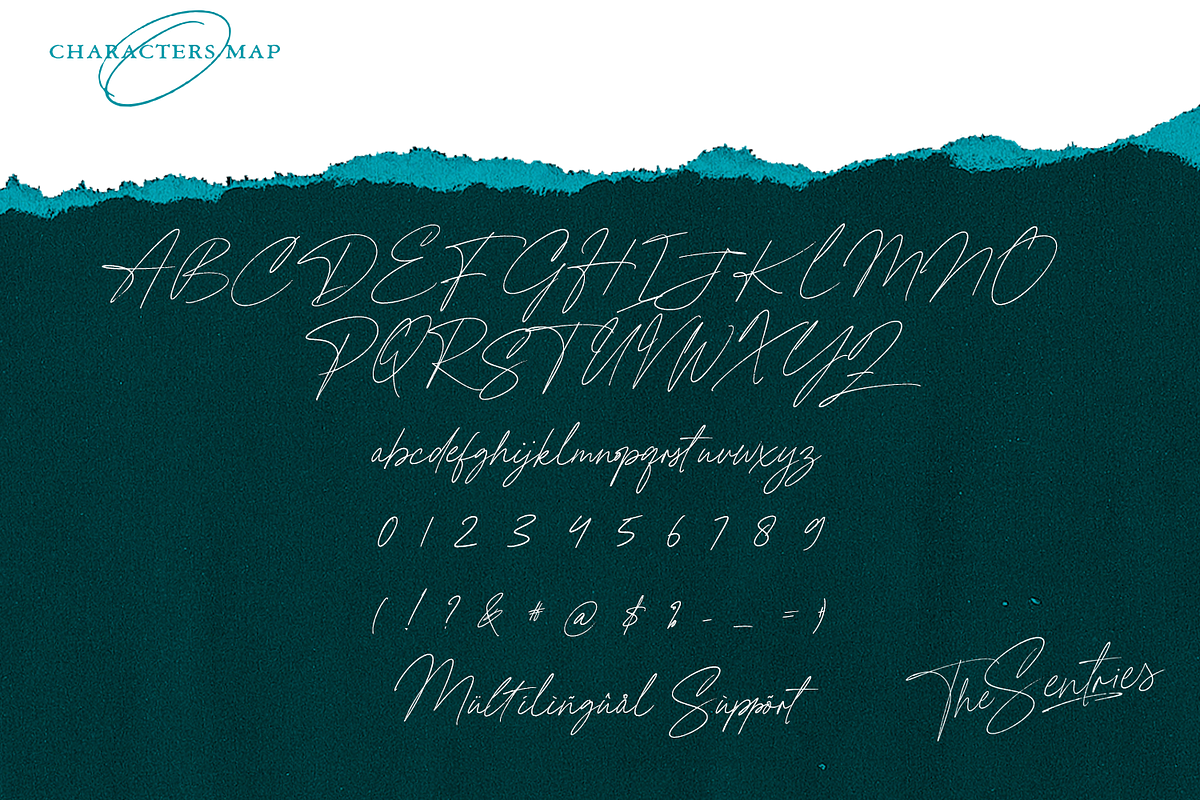 CHARACTERS MAP
ABCDEFGHIJKLMNO
PQRSTUVWXYZ
abcdefghijklmnopqrstuvwxyz
0 1 2 3 4 5 6 7 8 9
( ! ? & # @ $ % - _ = )
Mültilìñgûål Sùppõrt
TheSentries